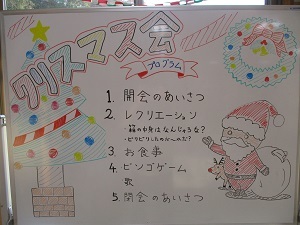 クリスマス会
プログラム
1. 開会のあいさつ
2. レクリエーション
・箱の中身はなんじゃろな?
3. お食事
4. ビンゴゲーム
歌
5. 閉会のあいさつ